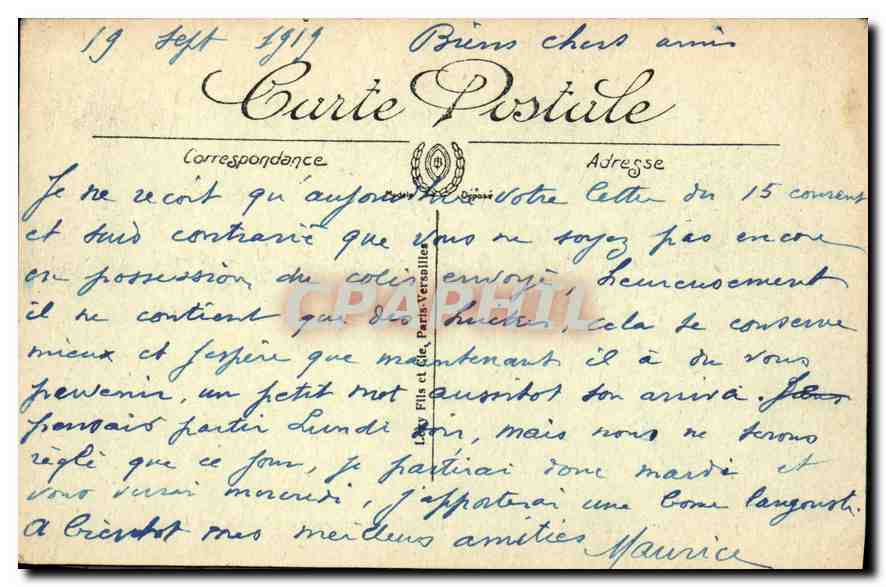 19 Sept 1919 Biens chers amis
Carte Postale
Correspondance Adresse
Modèle Déposé
Je ne reçoit qu'aujourd'hui votre lettre du 15 courent
et suis contrarié que vous ne soyez pas encore
en possession du colis envoyé, heureusement
il ne contient que des huitres, cela se conserve
mieux et j'espère que maintenant il à du vous
parvenir, un petit mot aussitot son arrivá. Je
pensais partir Lundi soir, mais nous ne serons
règlé que ce jour, je partirai donc mardi et
vous verrai mercredi, j'apporterai une bonne langouste.
A bientot mes meilleurs amitiés
Maurice
Lévy Fils et Cie, Paris-Versailles
CPAPHIL